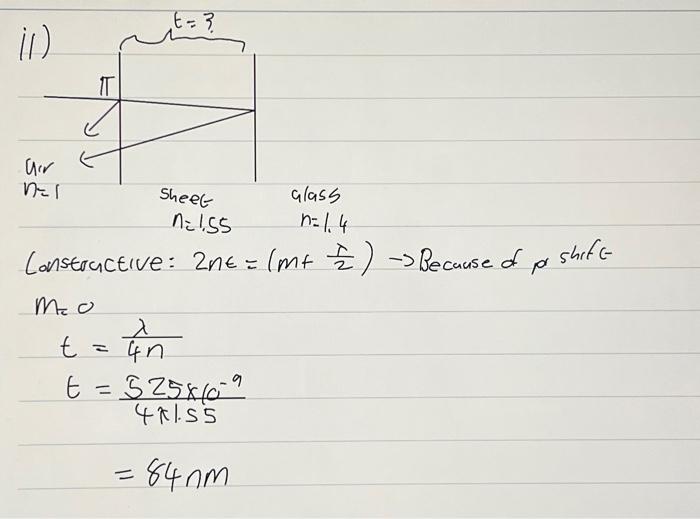 ii)
t = ?
π
air
n=1
Sheet
n=1.55
Glass
n=1.4
Constructive: 2nt = (m+ λ/2) -> Because of p shift
m=0
t = λ/4n
t = 525x10⁻⁹/4x1.55
= 84nm